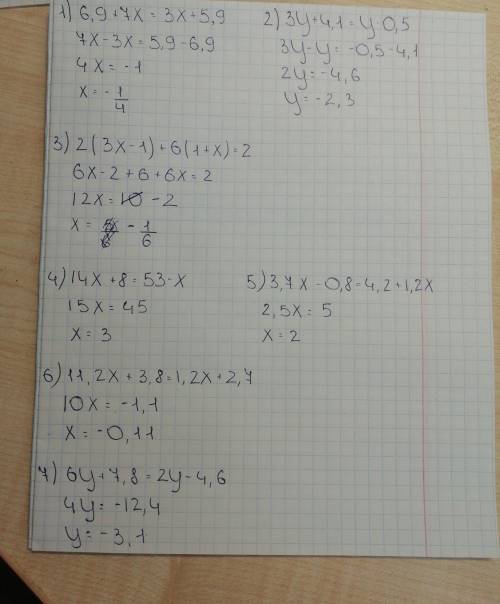 1) 6,9+7x=3x+5,9
7x-3x=5,9-6,9
4x=-1
x=-1/4
2) 3y+4,1=y-0,5
3y-y=-0,5-4,1
2y=-4,6
y=-2,3
3) 2(3x-1)+6(1+x)=2
6x-2+6+6x=2
12x= -2
x= -1/6
4) 14x+8=53-x
15x=45
x=3
5) 3,7x-0,8=4,2+1,2x
2,5x=5
x=2
6) 11,2x+3,8=1,2x+2,7
10x=-1,1
x=-0,11
7) 6y+7,8=2y-4,6
4y=-12,4
y=-3,1